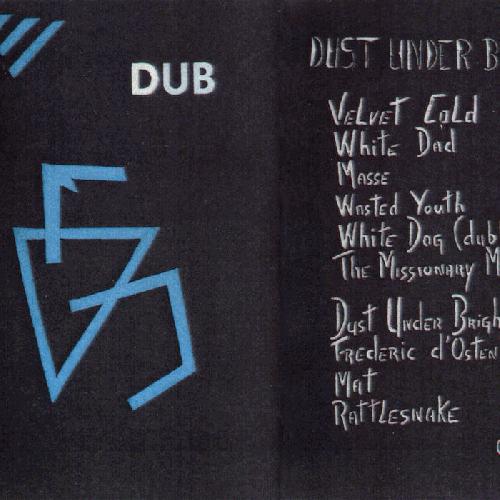 DUB
DUST UNDER B
VELVET COLD
White Dad
MASSE
Wasted Youth
White Dog (dub
The Missionary M
Dust Under Brigh
Frederic d'Osten
Mat
RATTLESNAKE